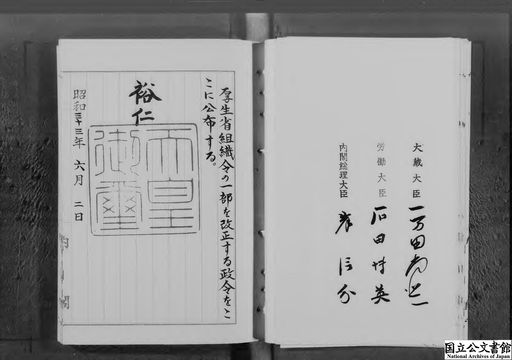 大蔵大臣 一万田尚登
労働大臣 石田博英
内閣総理大臣 岸信介
厚生省組織令の一部を改正する政令をこ
こに公布する。
裕仁
天皇
御璽
昭和三十三年 六月 二日
国立公文書館
National Archives of Japan